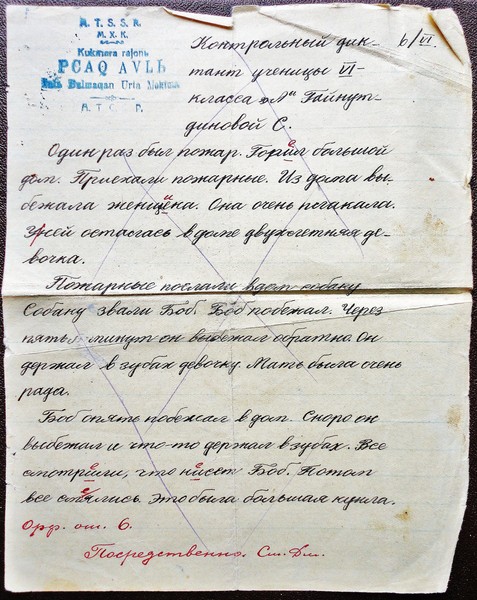 A. T. S. S. R.
M. X. K.
Kukmara rajonь
PCAQ AVLЬ
Tulь Bulmaqan Urta Məktəbe
A. T. C. P.
6/VI.
Контрольный дик-
тант ученицы VI-
класса „А" Гайнут-
диновой С.
Один раз был пожар. Горил большой
дом. Приехали пожарные. Из дома вы-
бежала женщена. Она очень плакала.
У ней осталась в доме двухлетняя де-
вочка.
Пожарные послали в дом собаку
Собаку звали Боб. Боб побежал. Через
пять минут он выбежал обратно. Он
держал в зубах девочку. Мать была очень
рада.
Боб опять побежал в дом. Скоро он
выбежал и что-то держал в зубах. Все
смотрили, что нисет Боб. Потом
все смялись. Это была большая кукла.
Орф. ош. 6.
Посредственно.